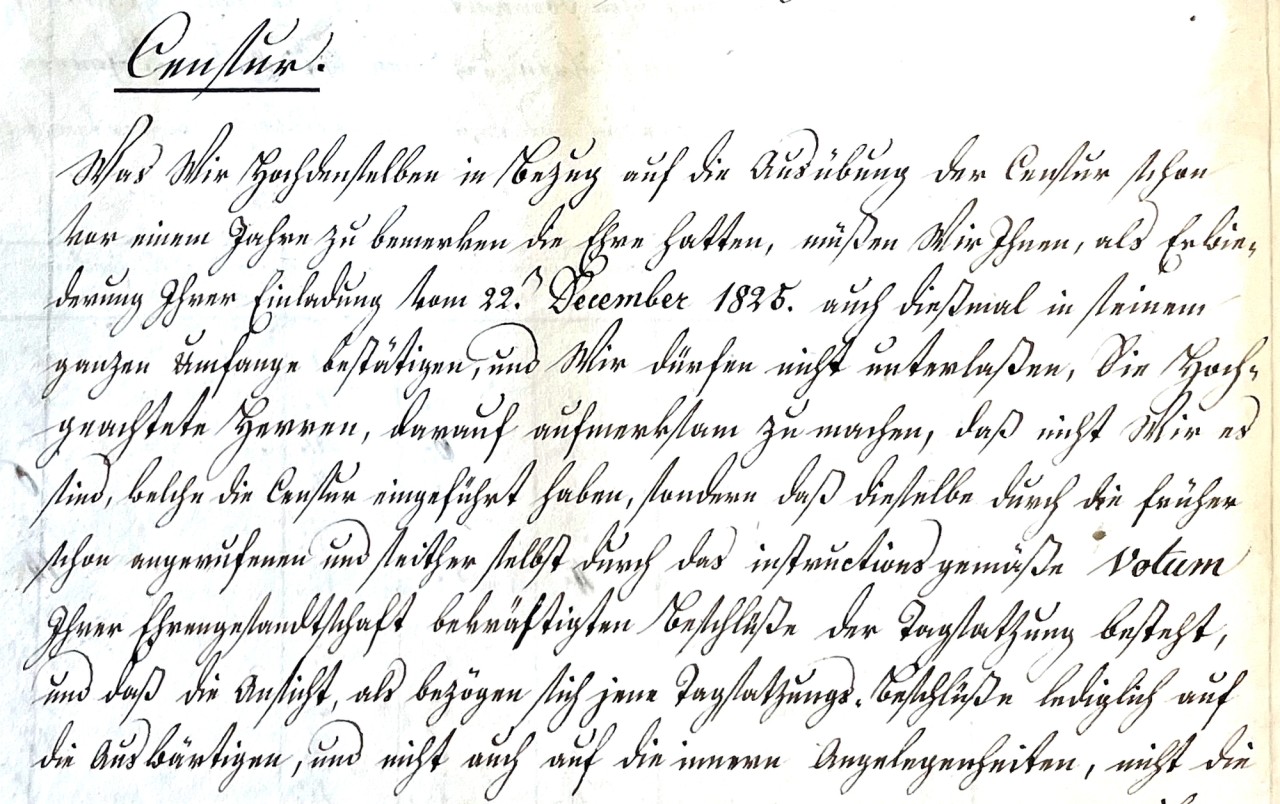 Censur.
Was Wir Hochdenselben in Bezug auf die Ausübung der Censur schon
vor einem Jahre zu bemerken die Ehre hatten, müßen Wir Ihnen, als Erwie-
derung Ihrer Einladung vom 22.n December 1825. auch dießmal in seinem
ganzen Umfange bestätigen, und Wir dürfen nicht unterlaßen, Sie Hoch-
geachtete Herren, darauf aufmerksam zu machen, daß nicht Wir es
sind, welche die Censur eingeführt haben, sondern daß dieselbe durch die früher
schon angerufenen und seither selbst durch das instructionsgemäße Votum
Ihrer Ehrengesandtschaft bekräftigten Beschlüße der Tagsatzung besteht,
und daß die Ansicht, als bezögen sich jene Tagsatzungs-Beschlüße lediglich auf
die Auswärtigen, und nicht auch auf die innern Angelegenheiten, nicht die